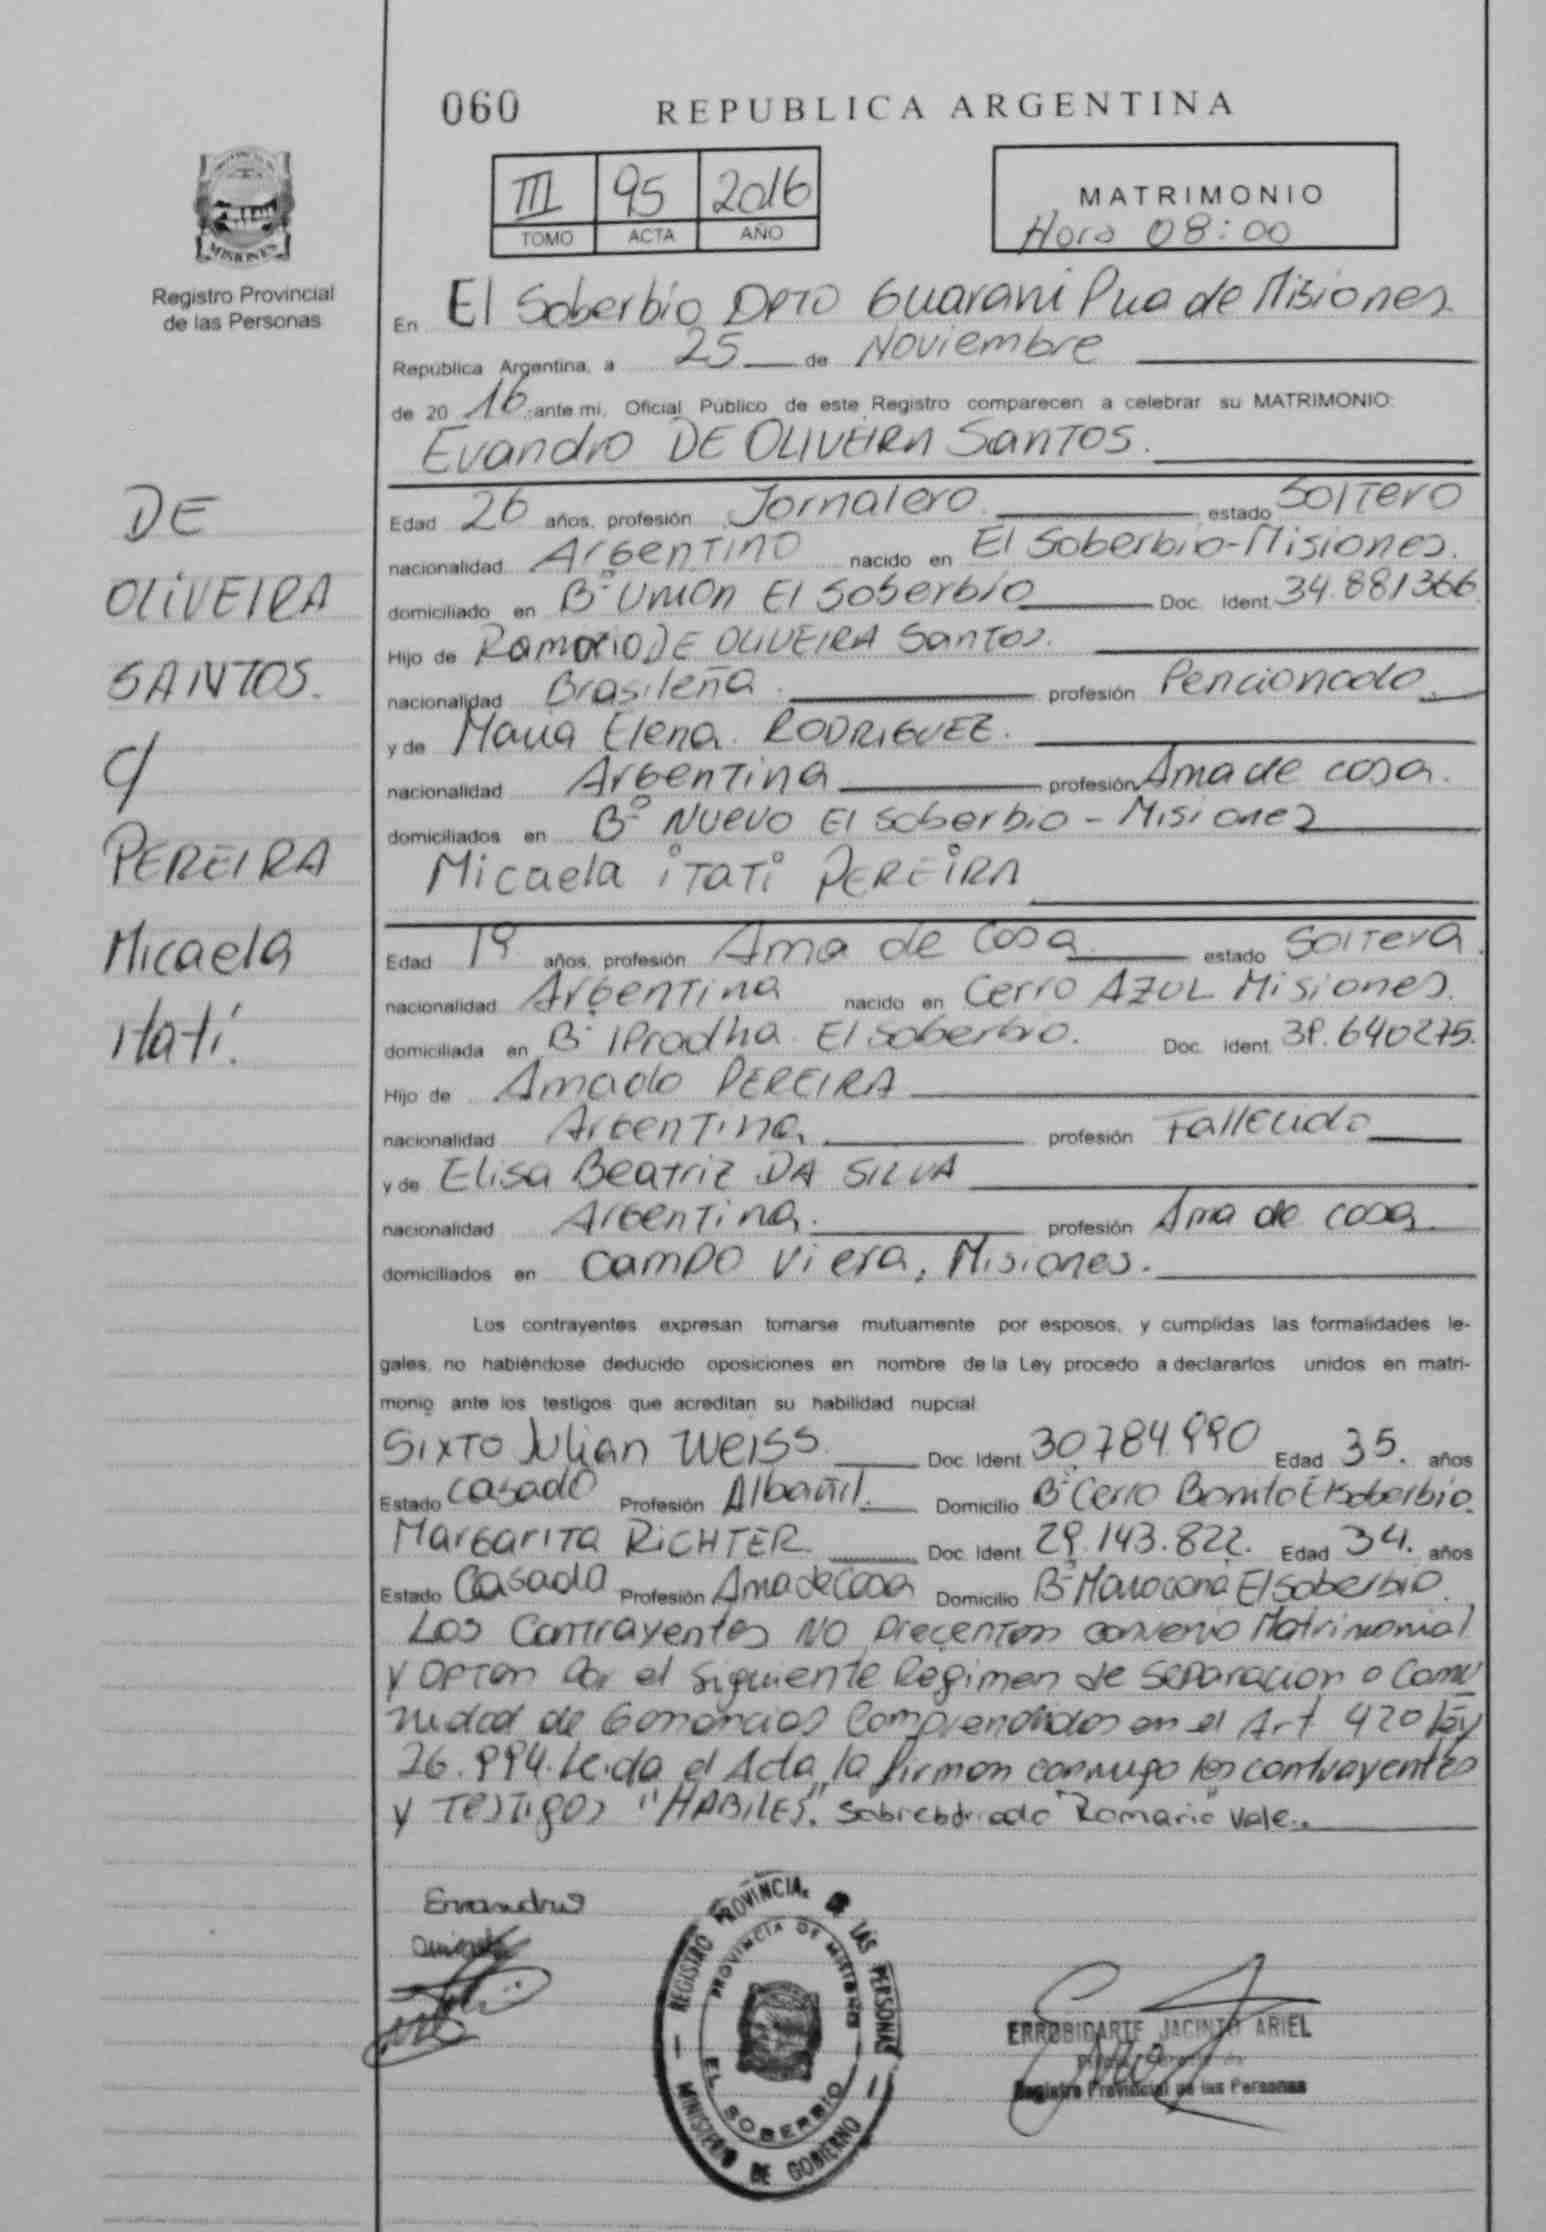 060 REPUBLICA ARGENTINA
III 95 2016
TOMO ACTA AÑO
MATRIMONIO
Hora 08:00
MISIONES
Registro Provincial
de las Personas
En El Soberbio DPTO Guarani Pua de Misiones
República Argentina, a 25 de Noviembre
de 20 16 ante mi, Oficial Público de este Registro comparecen a celebrar su MATRIMONIO:
Evandro DE OLIVEIRA SANTOS.
DE
OLIVEIRA
SANTOS.
c/
PEREIRA
Micaela
Itatí.
Edad 26 años, profesión Jornalero. estado Soltero
nacionalidad Argentino nacido en El Soberbio-Misiones.
domiciliado en Bº Union El Soberbio Doc. Ident. 34.881366
Hijo de Ramorio DE OLIVEIRA Santos.
nacionalidad Brasileña. profesión Pencionado.
y de Maria Elena RODRIGUEZ.
nacionalidad Argentina profesión Ama de casa.
domiciliados en Bº Nuevo El Soberbio - Misiones
Micaela iTaTi PEREIRA
Edad 19 años, profesión Ama de Casa estado Soltera.
nacionalidad Argentina nacido en Cerro AZUL Misiones.
domiciliada en Bº IProdha El Soberbio. Doc. ident. 39.640275.
Hijo de Amado PEREIRA
nacionalidad Argentina, profesión Fallecido
y de Elisa Beatriz DA SILVA
nacionalidad Argentina. profesión Ama de casa
domiciliados en Campo Viera, Misiones.
Los contrayentes expresan tomarse mutuamente por esposos, y cumplidas las formalidades le-
gales, no habiéndose deducido oposiciones en nombre de la Ley procedo a declararlos unidos en matri-
monio ante los testigos que acreditan su habilidad nupcial.
Sixto Julian Weiss. Doc. Ident. 30.784.990 Edad 35. años
Estado Casado Profesión Albañil. Domicilio Bº Cerro Bonito El Soberbio.
Margarita RICHTER. Doc. Ident. 29.143.822. Edad 34. años
Estado Casada Profesión Ama de Casa Domicilio Bº Mocona El Soberbio.
Los Contrayentes NO Precentan convenio Matrimonial
y optan por el siguiente Regimen de Separacion o Comu
nidad de Ganancias Comprendidos en el Art 420 Ley
26.994. Leida el Acta, la firman conmigo los contrayentes
y Testigos "HABILES". Sobreborrado "Romario" Vale.
Evandro
REGISTRO PROVINCIAL DE LAS PERSONAS
PROVINCIA DE MISIONES
EL SOBERBIO
MINISTERIO DE GOBIERNO
ERROBIDARTE JACINTO ARIEL
Registro Provincial de las Personas